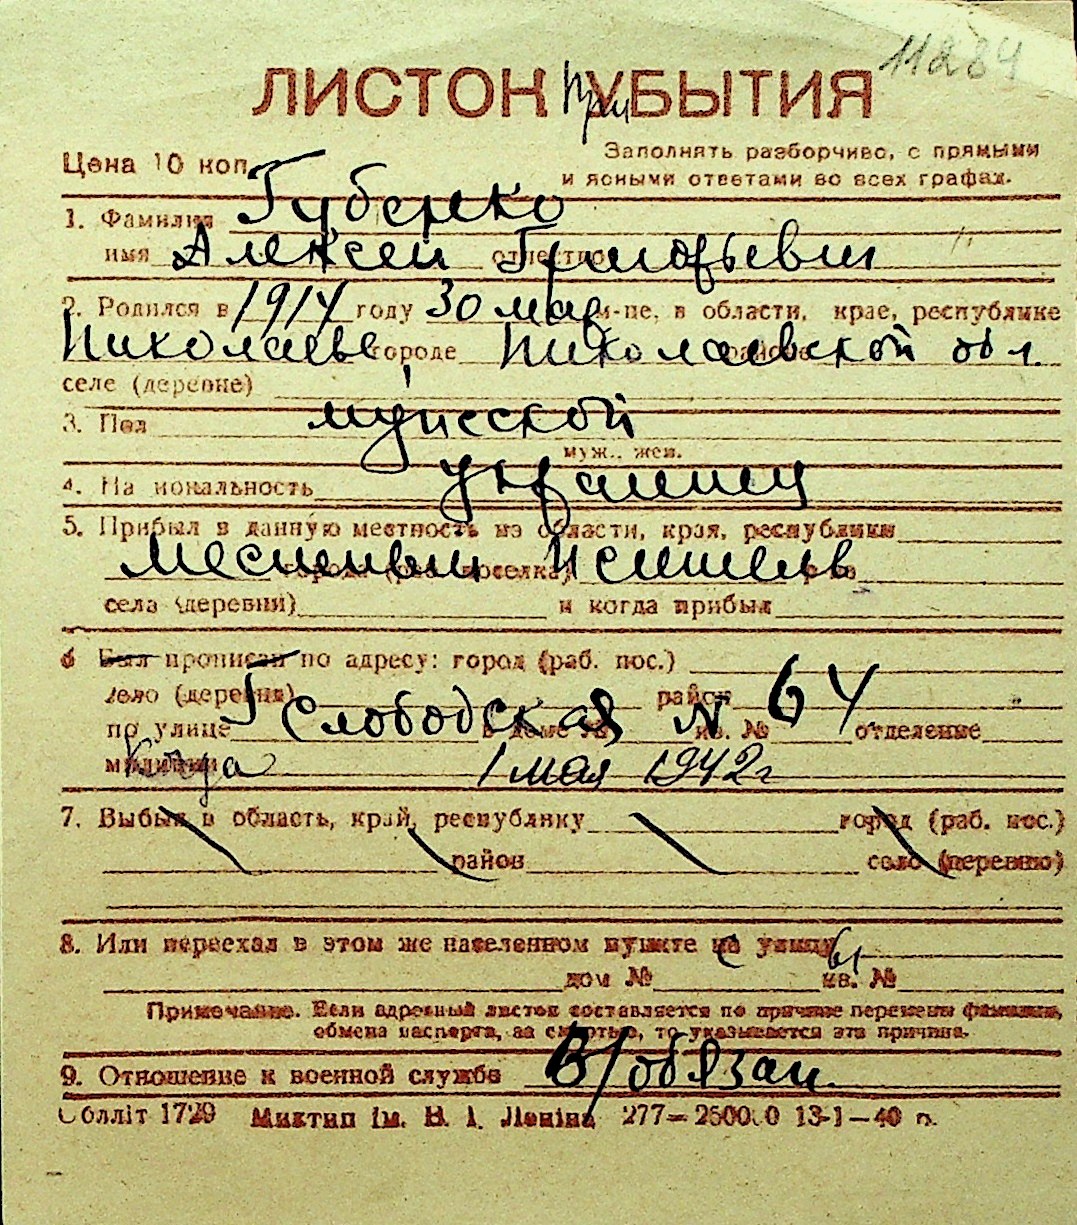 11284
ЛИСТОК При УБЫТИЯ
Цена 10 коп.
Заполнять разборчиво, с прямыми
и ясными ответами во всех графах.
1. Фамилия Губенко
имя Алексей отчество Григорьевич
2. Родился в 1914 году 30 мая м-це, в области, крае, республике
Николаеве городе Николаевской обл.
селе (деревне)
3. Пол мужской
муж., жен.
4. Национальность украинец
5. Прибыл в данную местность из области, края, республики
Местный житель
села (деревни) и когда прибыл
6 Был прописан по адресу: город (раб. пос.)
село (деревня) район 64
по улице Г Слободская N кв. № отделение
милиции Когда 1 мая 1942 г
7. Выбыл в область, край, республику город (раб. пос.)
район село (деревню)
8. Или переехал в этом же населенном пункте на с улицу ы
дом № кв. №
Примечание. Если адресный листок составляется по причине перемены фамилии,
обмена паспорта, за смертью, то указывается эта причина.
9. Отношение к военной службе В/обязан.
Обліт 1729 Миктип ім. В. І. Леніна 277—250000 13-1—40 р.